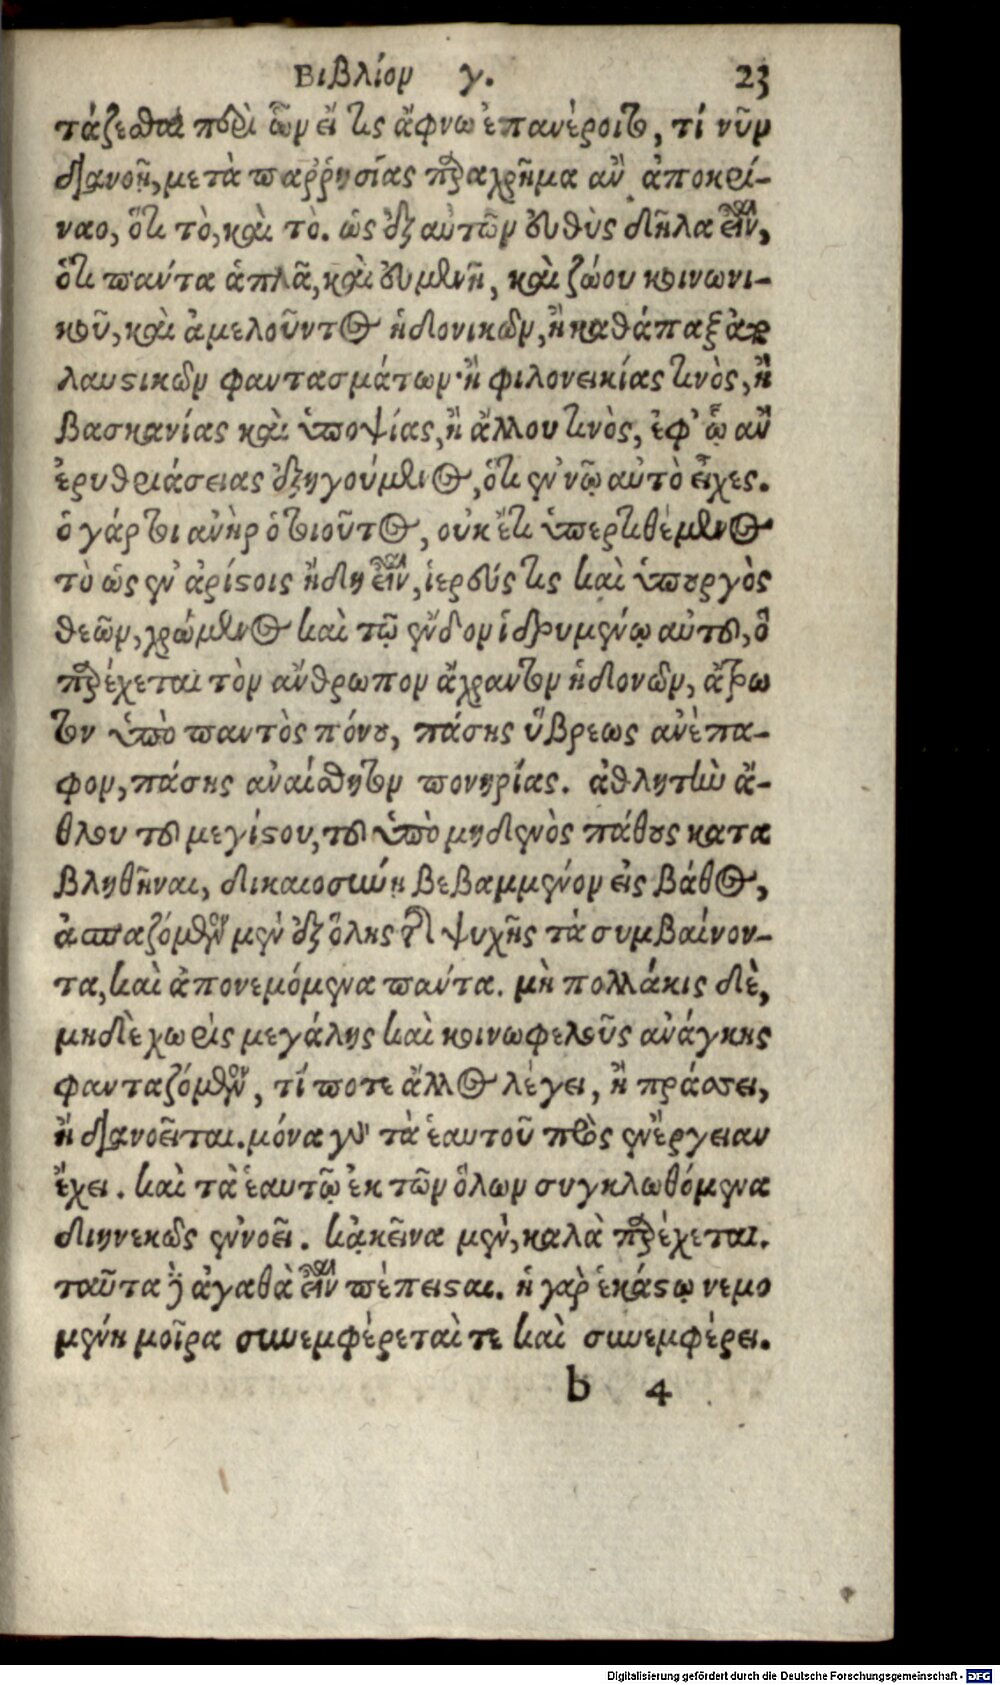 Βιβλίον γ. 23
τάζεσθαι περὶ ὧν εἴ τις ἄφνω ἐπανέροιτο, τί νῦν
διανοῇ, μετὰ παῤῥησίας παραχρῆμα ἂν ἀποκρί-
ναο, ὅτι τὸ, καὶ τὸ. ὡς ἐξ αὐτῶν εὐθὺς δῆλα εἶναι,
ὅτι πάντα ἁπλᾶ, καὶ εὐμενῆ, καὶ ζώου κοινωνι-
κοῦ, καὶ ἀμελοῦντος ἡδονικῶν, ἢ καθάπαξ ἀπο
λαυστικῶν φαντασμάτων· ἢ φιλονεικίας τινὸς, ἢ
βασκανίας καὶ ὑποψίας, ἢ ἄλλου τινὸς, ἐφ' ᾧ ἂν
ἐρυθριάσειας ἐξηγούμενος, ὅτι ἐν νῷ αὐτὸ εἶχες.
ὁ γάρ τοι ἀνὴρ ὁ τοιοῦτος, οὐκ ἔτι ὑπερτιθέμενος
τὸ ὡς ἐν ἀρίστοις ἤδη εἶναι, ἱερεύς τις καὶ ὑπουργὸς
θεῶν, χρώμενος καὶ τῷ ἔνδον ἱδρυμένῳ αὐτοῦ, ὃ
παρέχεται τὸν ἄνθρωπον ἄχραντον ἡδονῶν, ἄτρω
τον ὑπὸ παντὸς πόνου, πάσης ὕβρεως ἀνέπα-
φον, πάσης ἀναίσθητον πονηρίας. ἀθλητὴν ἄ-
θλου τοῦ μεγίστου, τοῦ ὑπὸ μηδενὸς πάθους κατα
βληθῆναι, δικαιοσύνῃ βεβαμμένον εἰς βάθος,
ἀσπαζόμενον μὲν ἐξ ὅλης τῆς ψυχῆς τὰ συμβαίνον-
τα, καὶ ἀπονεμόμενα πάντα. μὴ πολλάκις δὲ,
μηδὲ χωρὶς μεγάλης καὶ κοινωφελοῦς ἀνάγκης
φανταζόμενον, τί ποτε ἄλλος λέγει, ἢ πράσσει,
ἢ διανοεῖται. μόνα γὰρ τὰ ἑαυτοῦ πρὸς ἐνέργειαν
ἔχει. καὶ τὰ ἑαυτῷ ἐκ τῶν ὅλων συγκλωθόμενα
διηνεκῶς ἐννοεῖ. κἀκεῖνα μὲν, καλὰ παρέχεται.
ταῦτα δὲ ἀγαθὰ εἶναι πέπεισται. ἡ γὰρ ἑκάστῳ νεμο
μένη μοῖρα συνεμφέρεταί τε καὶ συνεμφέρει.
b 4
Digitalisierung gefördert durch die Deutsche Forschungsgemeinschaft - DFG